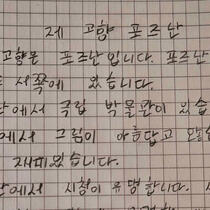 제 고향 포르난
고향은 포르난입니다. 포르난
서쪽에 있습니다.
에서 국립 박물관이 있습
에서 그림이 아름답고
재미있습니다.
에서 시청이 유명합니다.